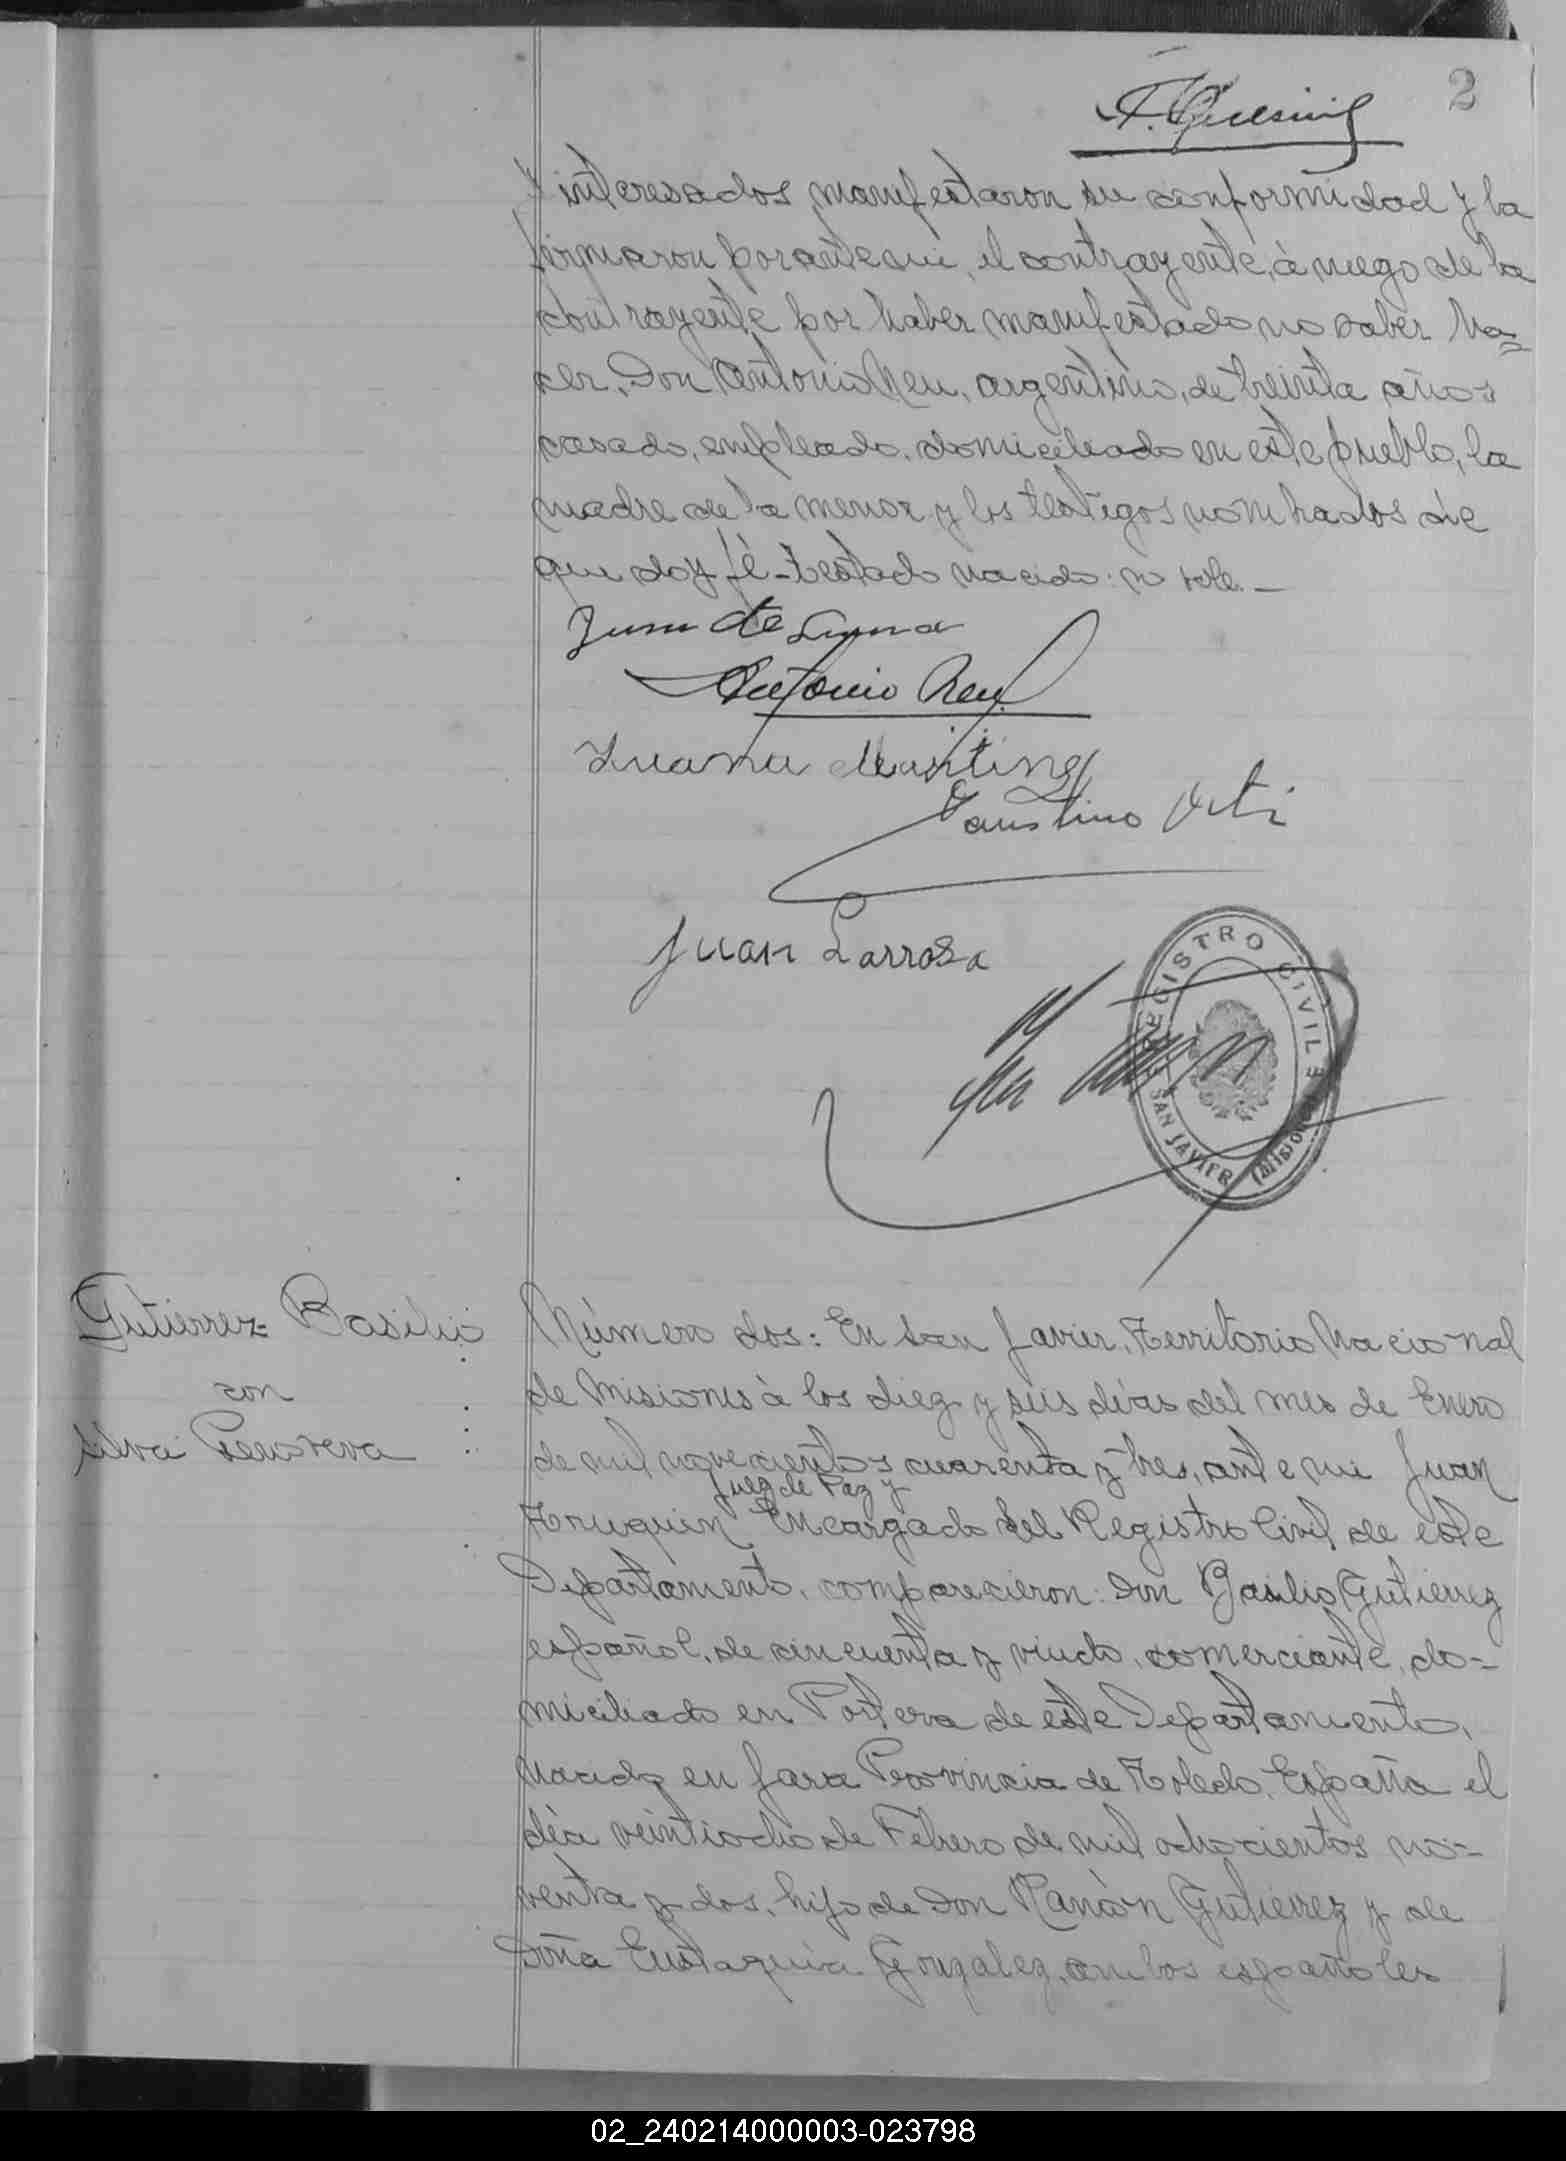 2
interesados manifestaron su conformidad y la
firmaron por ante mi, el contrayente, à ruego de la
contrayente por haber manifestado no saber ha=
cer, Don Antonio Neu, argentino, de treinta años
casado, empleado, domiciliado en este pueblo, la
madre de la menor y los testigos nombrados de
que doy fé - testado nacido: no vale. -
Juan de Lima
Antonio Neu
Juana
Faustino
Juan Larrosa
REGISTRO CIVIL
SAN JAVIER (Misiones)
Gutierrez Basilio
con
Silva Genoveva
Número dos: En San Javier, Territorio Nacional
de Misiones à los diez y seis días del mes de Enero
de mil novecientos cuarenta y tres, ante mi Juan
Juez de Paz y
Encargado del Registro Civil de este
Departamento, comparecieron: Don Basilio Gutierrez
español, de cincuenta y viudo, comerciante, do=
miciliado en Portera de este Departamento,
nacido en Provincia de Toledo, España el
día veintiocho de Febrero de mil ochocientos no=
venta y dos, hijo de Don Ramón Gutierrez y de
Doña Eustaquia Gonzalez, ambos españoles
02_240214000003-023798